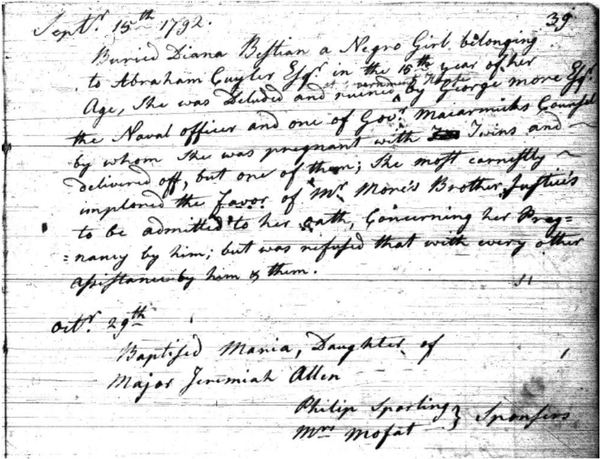 39
Septr. 15th 1792.
Buried Diana Bestian a Negro Girl belonging
to Abraham Cuyler Esqr. in the 15th year of her
Age, She was Deluded and ruined at by George More Esqr.
the Naval officer and one of Govr. Macarmicks Counsel
by whom She was pregnant with Twins and
delivered off, but one of them; She most earnestly
implored the favor of Mr. More's Brother Justice's
to be admitted to her oath, Concerning her Preg=
=nancy by him; but was refused that with every other
assistance by him & them.
Octr. 29th
Baptised Maria, Daughter of
Major Jeremiah Allen
Philip Sparling } Sponsers
Mrs Mofat